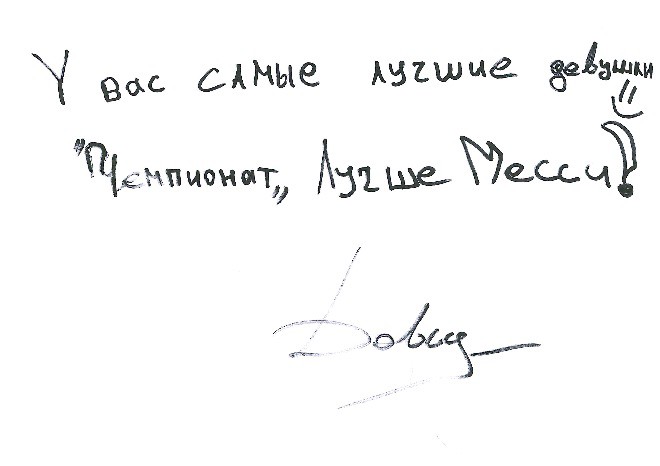 У вас самые лучшие девушки
"Чемпионат„ Лучше Месси!